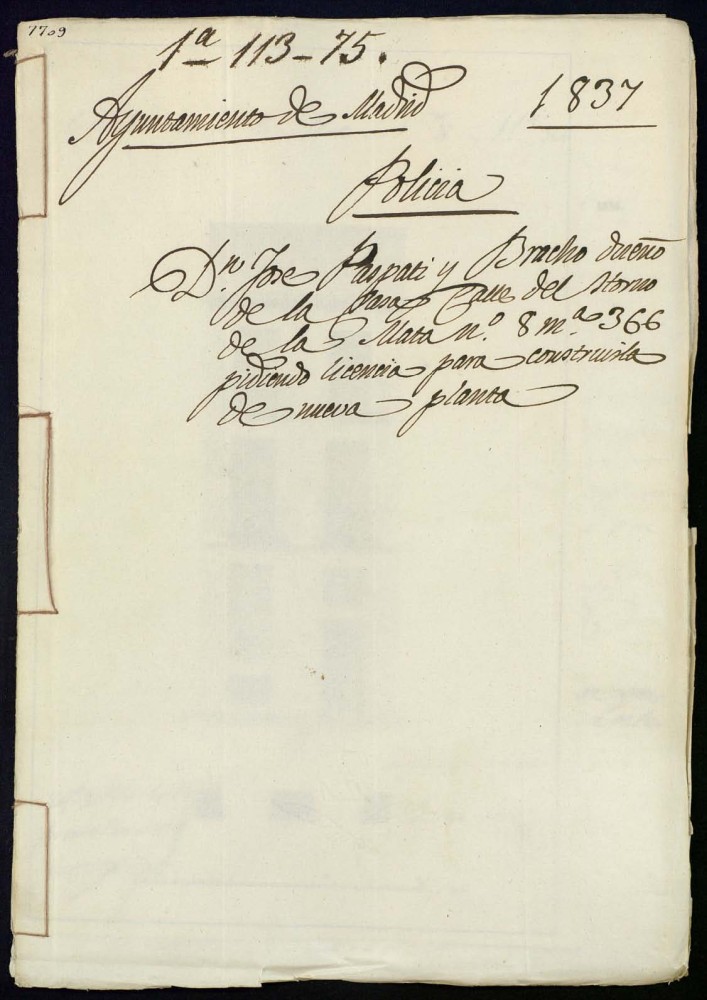 7709
1ª 113-75.
Ayuntamiento de Madrid 1837
Policia
Dn. Jose Paspati y Bracho dueño
de la Casa Calle del Horno
de la Mata nº. 8 mª 366
pidiendo licencia para construirla
de nueva planta